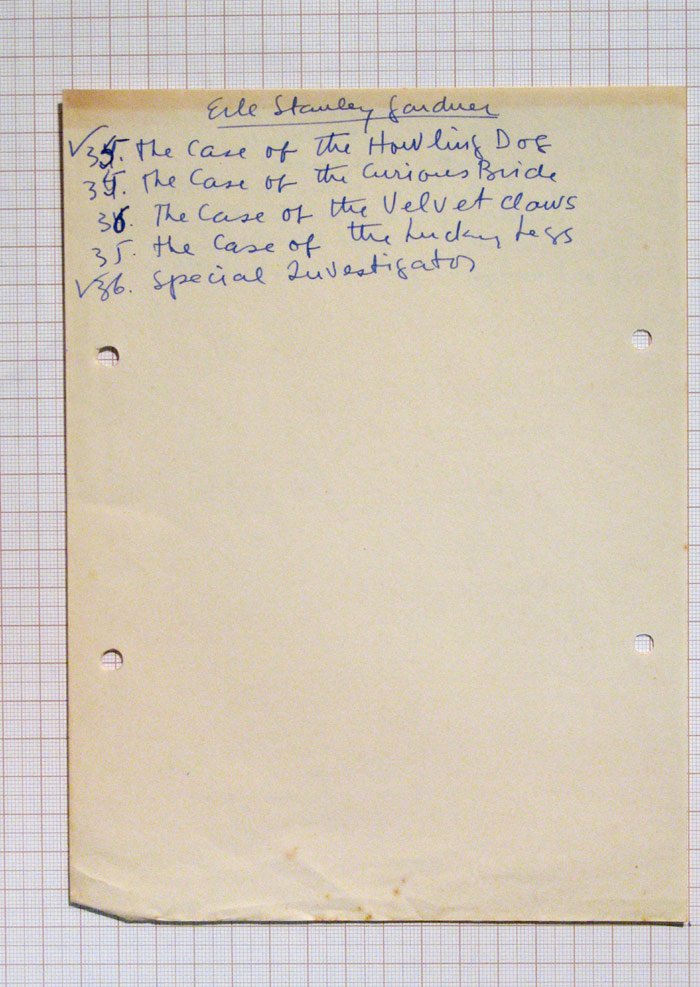 Erle Stanley Gardner
✓ 34. the Case of the Howling Dog
35. The Case of the Curious Bride
36. The Case of the Velvet Claws
35. the Case of the Lucky Legs
✓ 36. Special Investigator